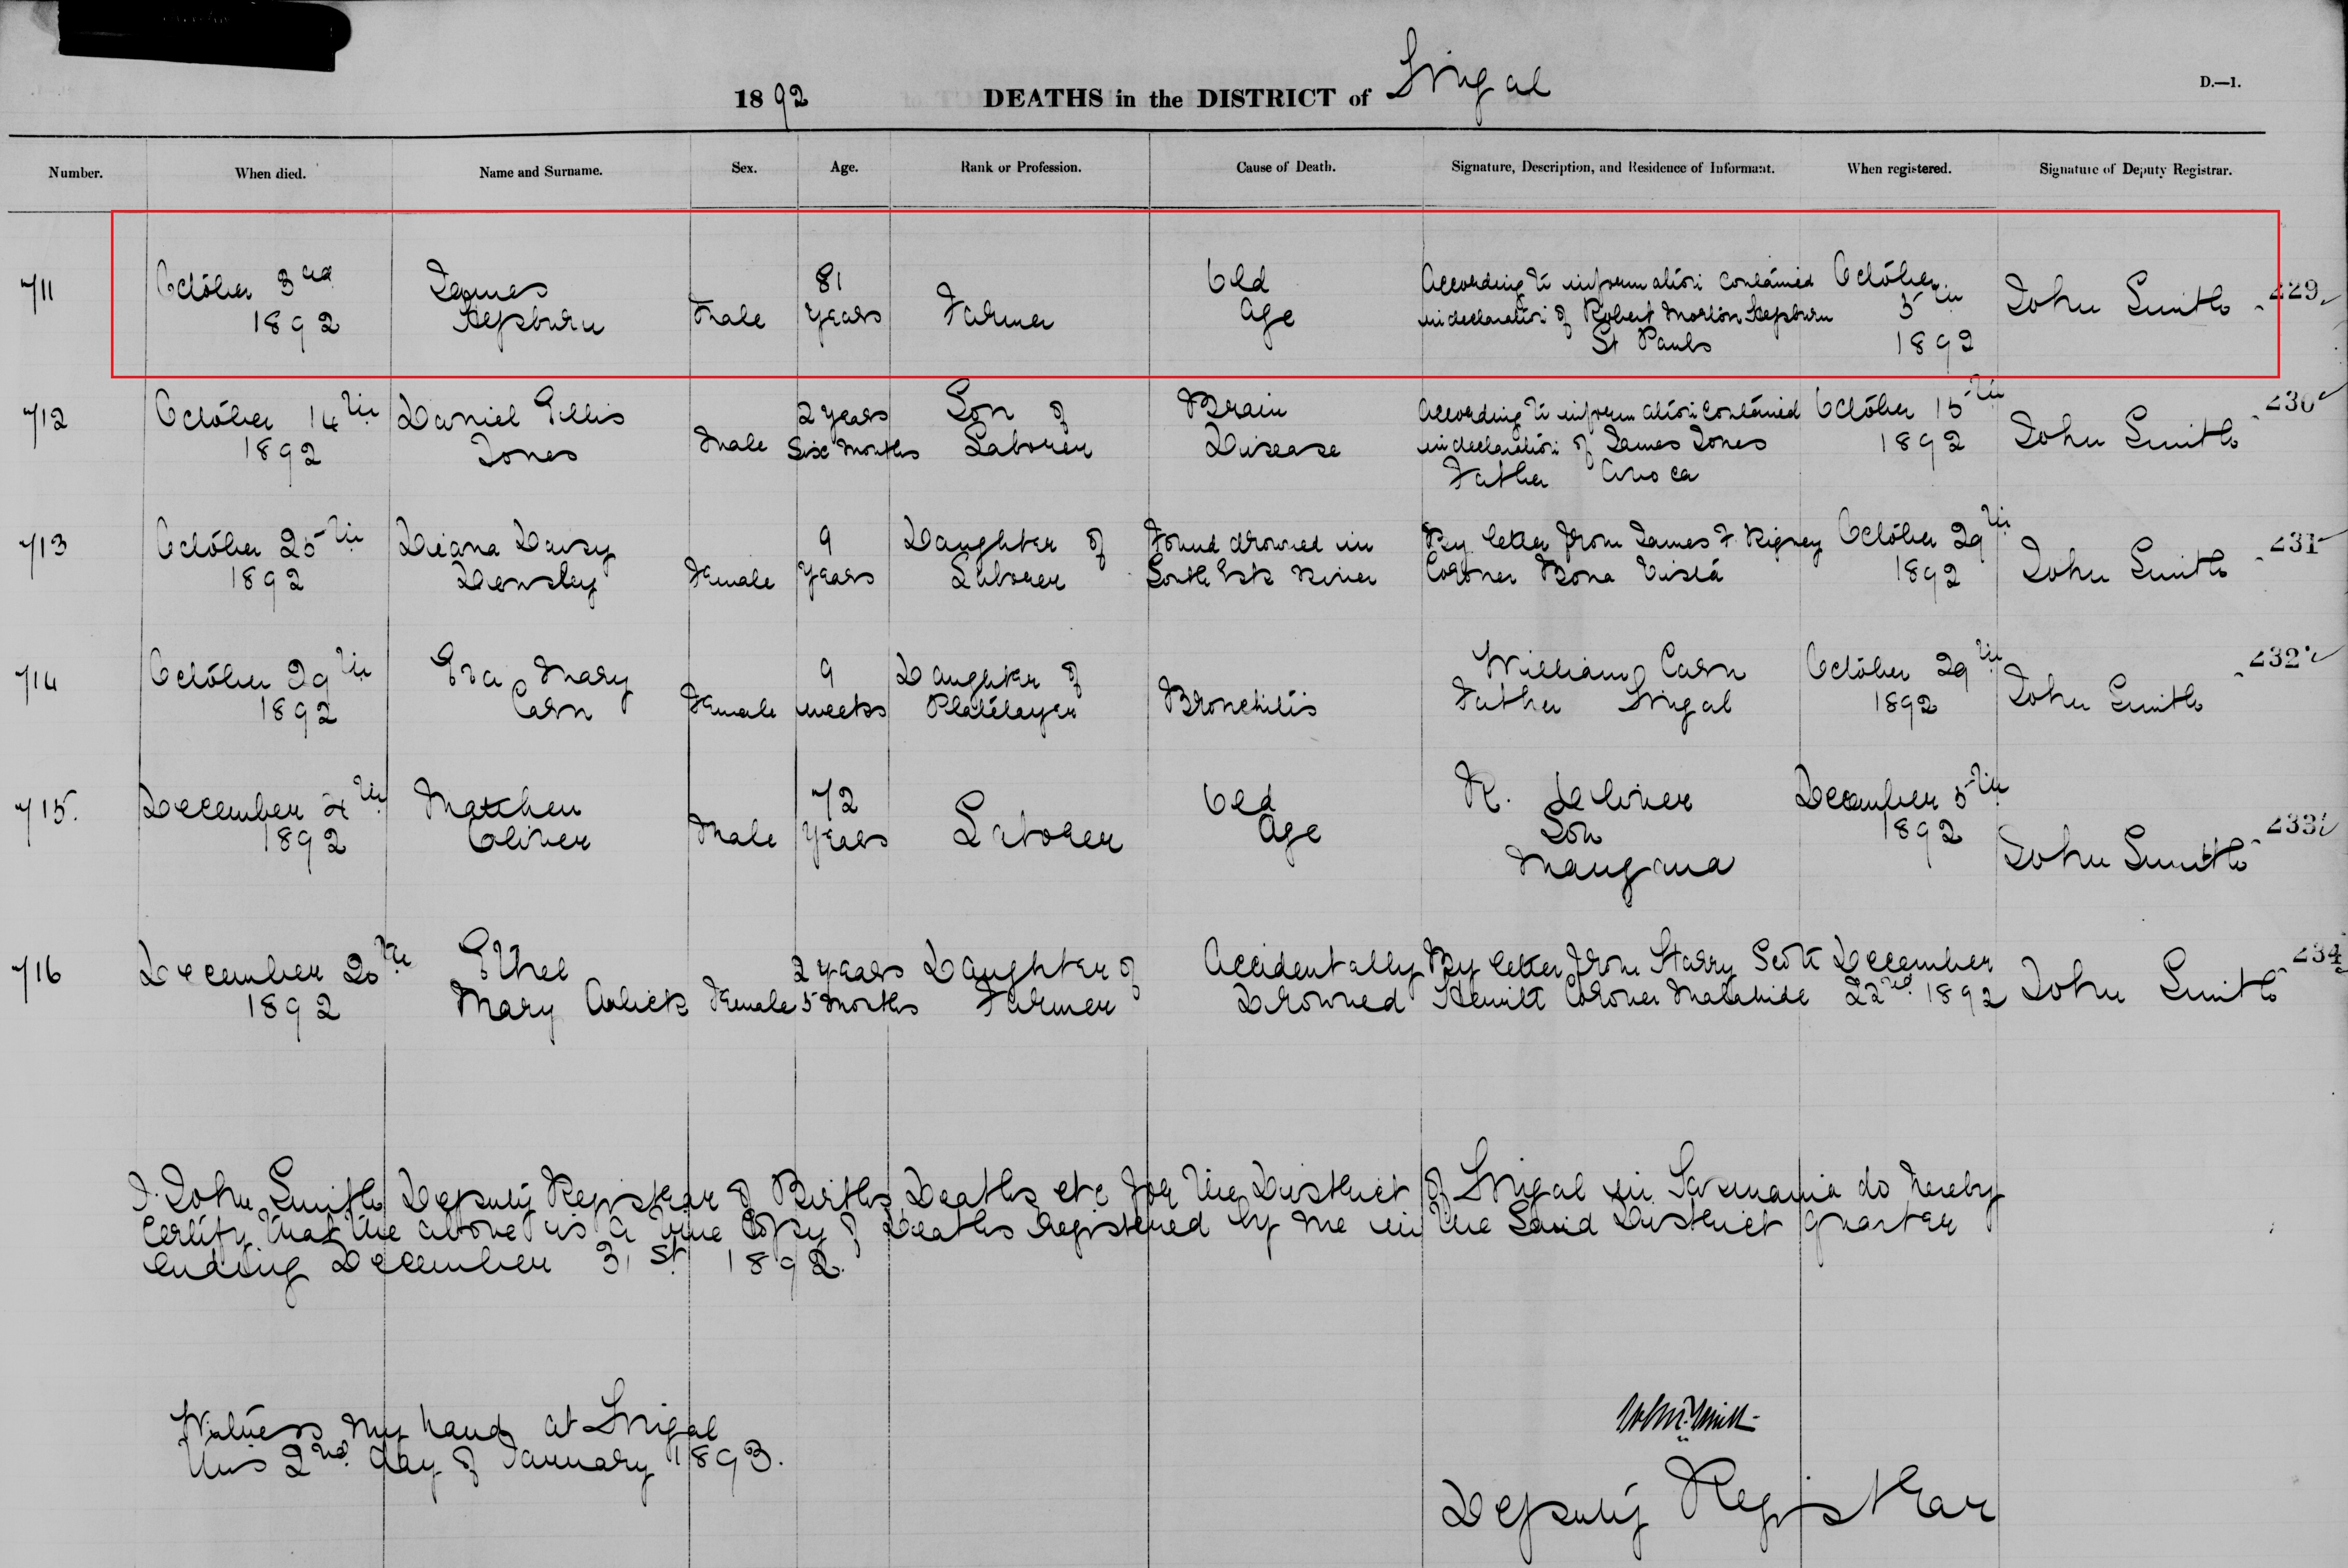 1892 DEATHS in the DISTRICT of Fingal D.—1.
Number. When died. Name and Surname. Sex. Age. Rank or Profession. Cause of Death. Signature, Description, and Residence of Informant. When registered. Signature of Deputy Registrar.
711 October 3rd 1892 James Hepburn Male 81 Years Farmer Old Age According to information contained in declaration of Robert Morton Hepburn St Pauls October 5th 1892 John Smith 229
712 October 14th 1892 Daniel Gillis Jones Male 2 Years Six Months Son of Laborer Brain Disease According to information contained in declaration of James Jones Father Avoca October 15th 1892 John Smith 230
713 October 25th 1892 Diana Daisy Female 9 Years Daughter of Laborer Found drowned in South Esk River By letter from James F. Rigney Coroner Bona Vista October 29th 1892 John Smith 231
714 October 29th 1892 Eva Mary Carn Female 9 weeks Daughter of Platelayer Bronchitis William Carn Father Fingal October 29th 1892 John Smith 232
715. December 4th 1892 Matthew Oliver Male 72 Years Laborer Old Age R. Oliver Son Mangana December 5th 1892 John Smith 233
716 December 20th 1892 Ethel Mary Female 2 Years 5 Months Daughter of Farmer Accidentally Drowned By letter from Harry Scott Hewitt Coroner Malahide December 22nd 1892 John Smith 234
I John Smith Deputy Registrar of Births Deaths etc for the District of Fingal in Tasmania do hereby
Certify that the above is a true Copy of Deaths Registered by me in the Said District Quarter
ending December 31st 1892.
Witness my hand at Fingal
this 2nd day of January 1893.
John Smith
Deputy Registrar